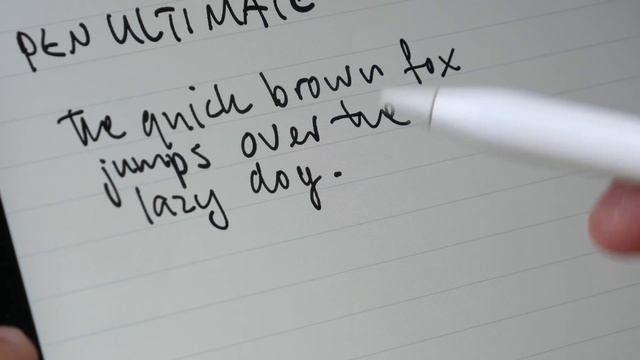 PENULTIMATE
the quick brown fox
jumps over the
lazy dog.